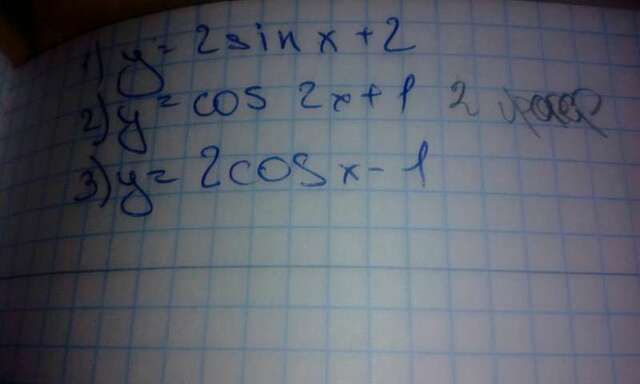 1) y = 2 sin x + 2
2) y = cos 2x + 1 2
3) y = 2 cos x - 1